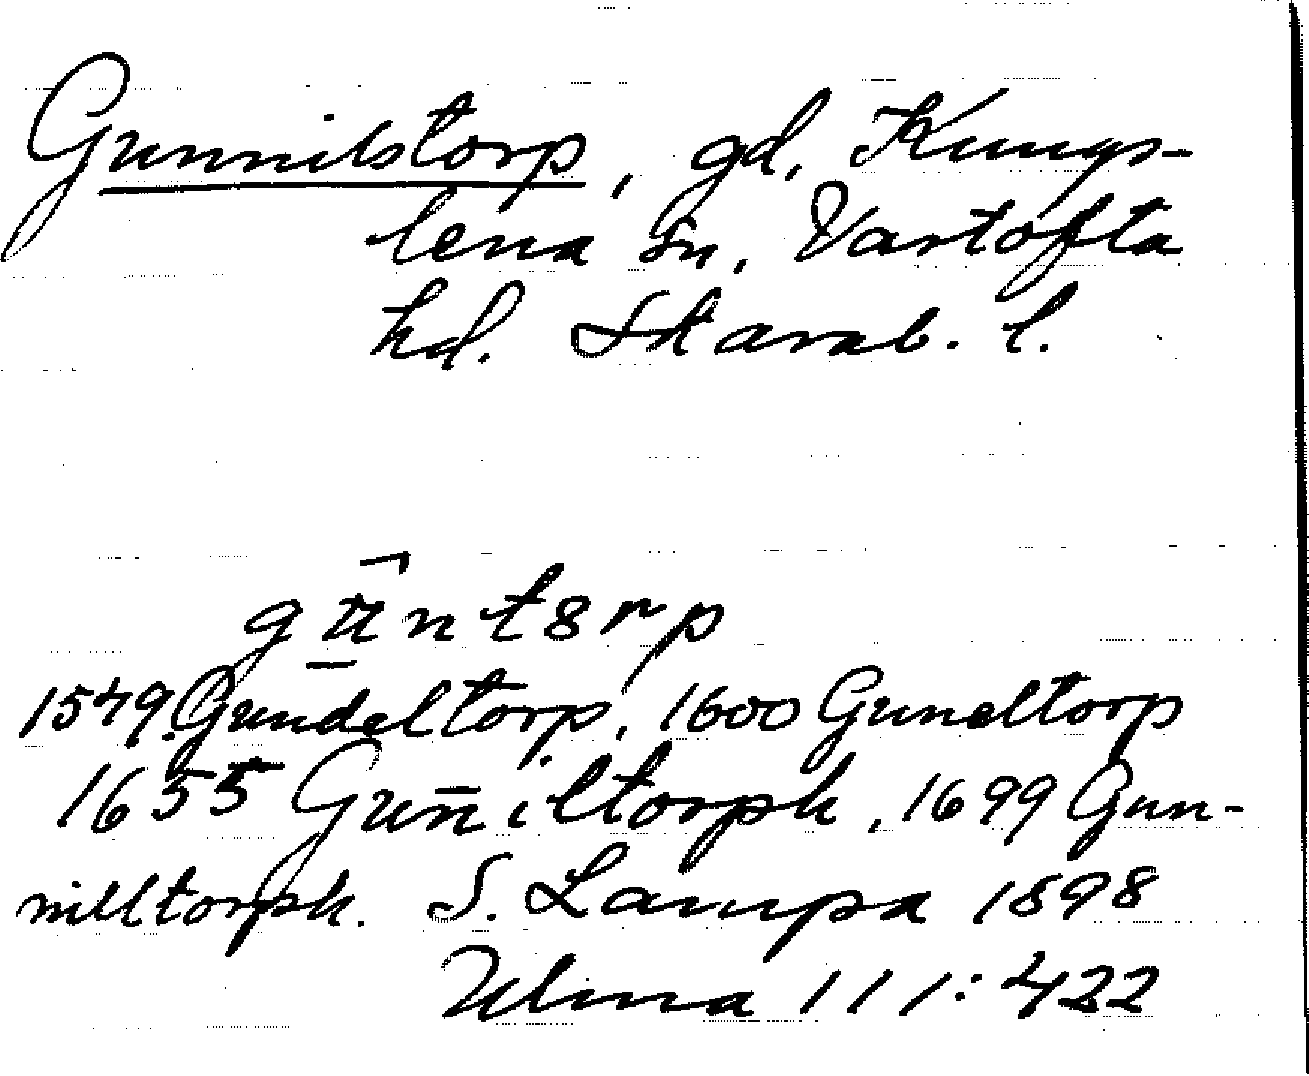 Gunnilstorp, gd. Kungs-
lena sn, Vartofta
hd. Skarab. l.
gūntørp
1549 Gundeltorp, 1600 Guneltorp
1655 Gun̄iltorph, 1699 Gun-
nilltorph. S. Lampa 1898
Ulma 111:422